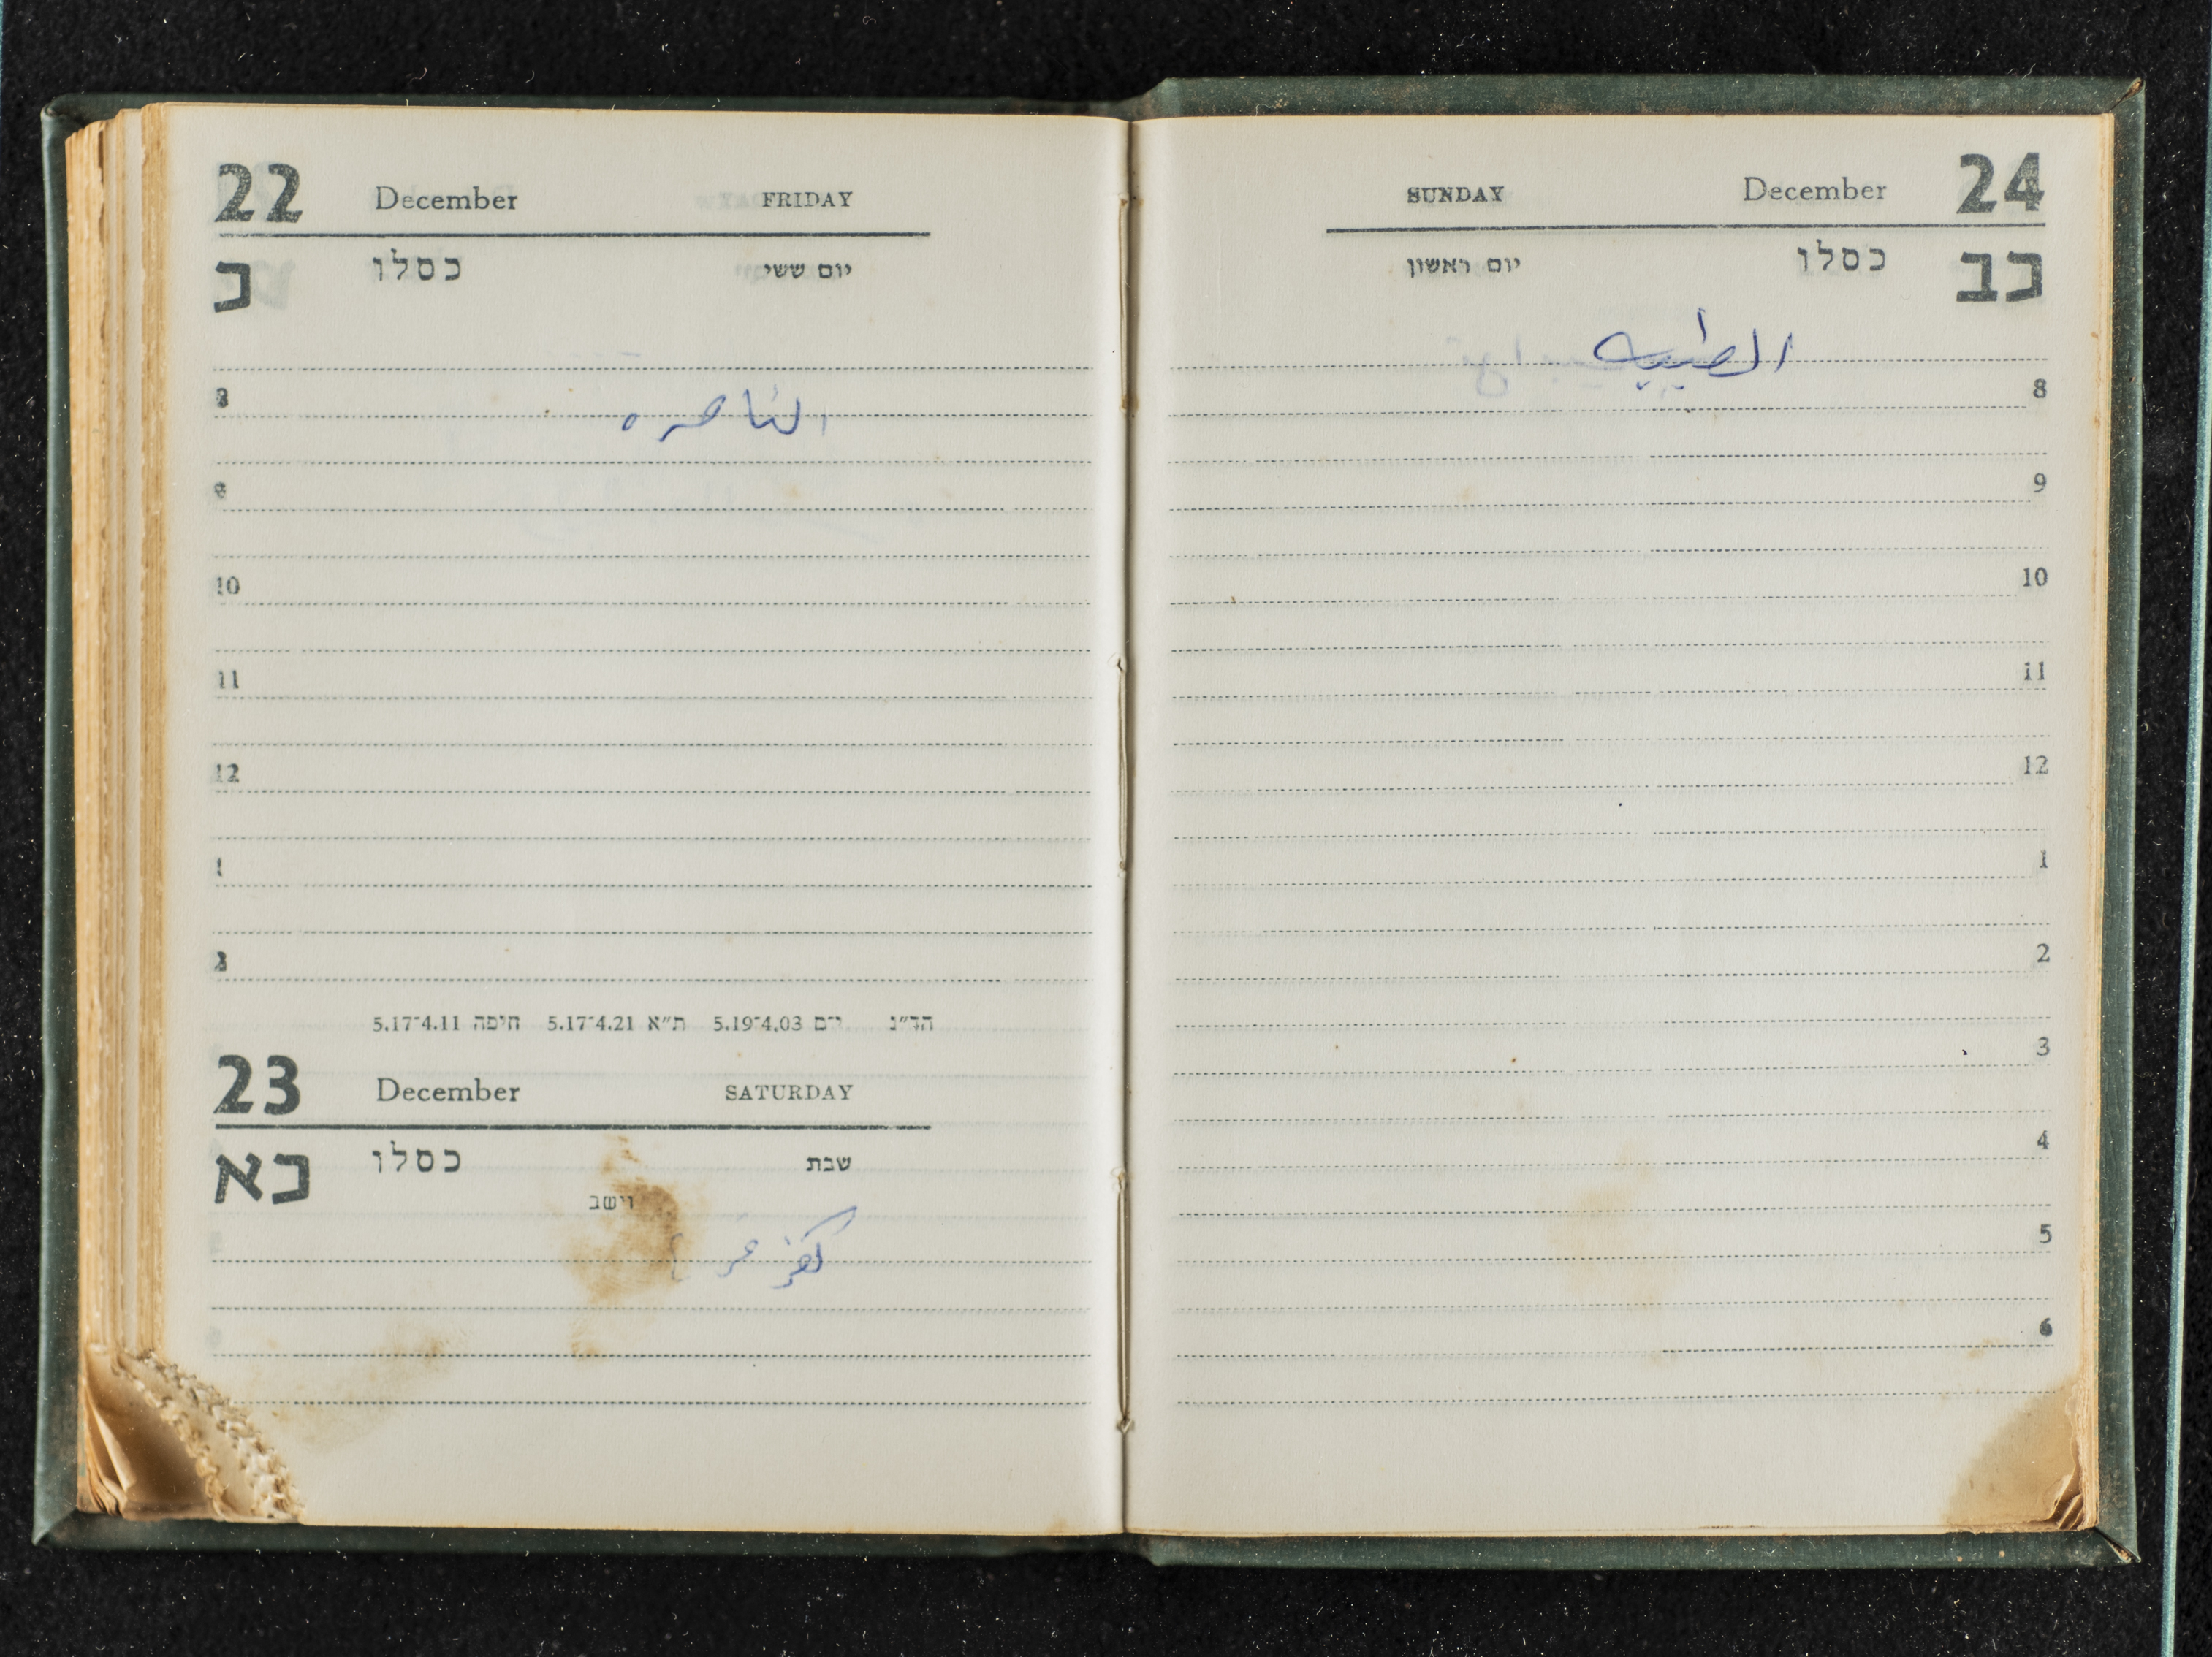 22 December FRIDAY
כ כסלו יום ששי
8
الناصره
9
10
11
12
1
2
הד״נ י־ם 5.19־4.03 ת״א 5.17־4.21 חיפה 5.17־4.11
23 December SATURDAY
כא כסלו שבת
וישב
كفر
SUNDAY December 24
יום ראשון כסלו כב
الطيبه
8
9
10
11
12
1
2
3
4
5
6